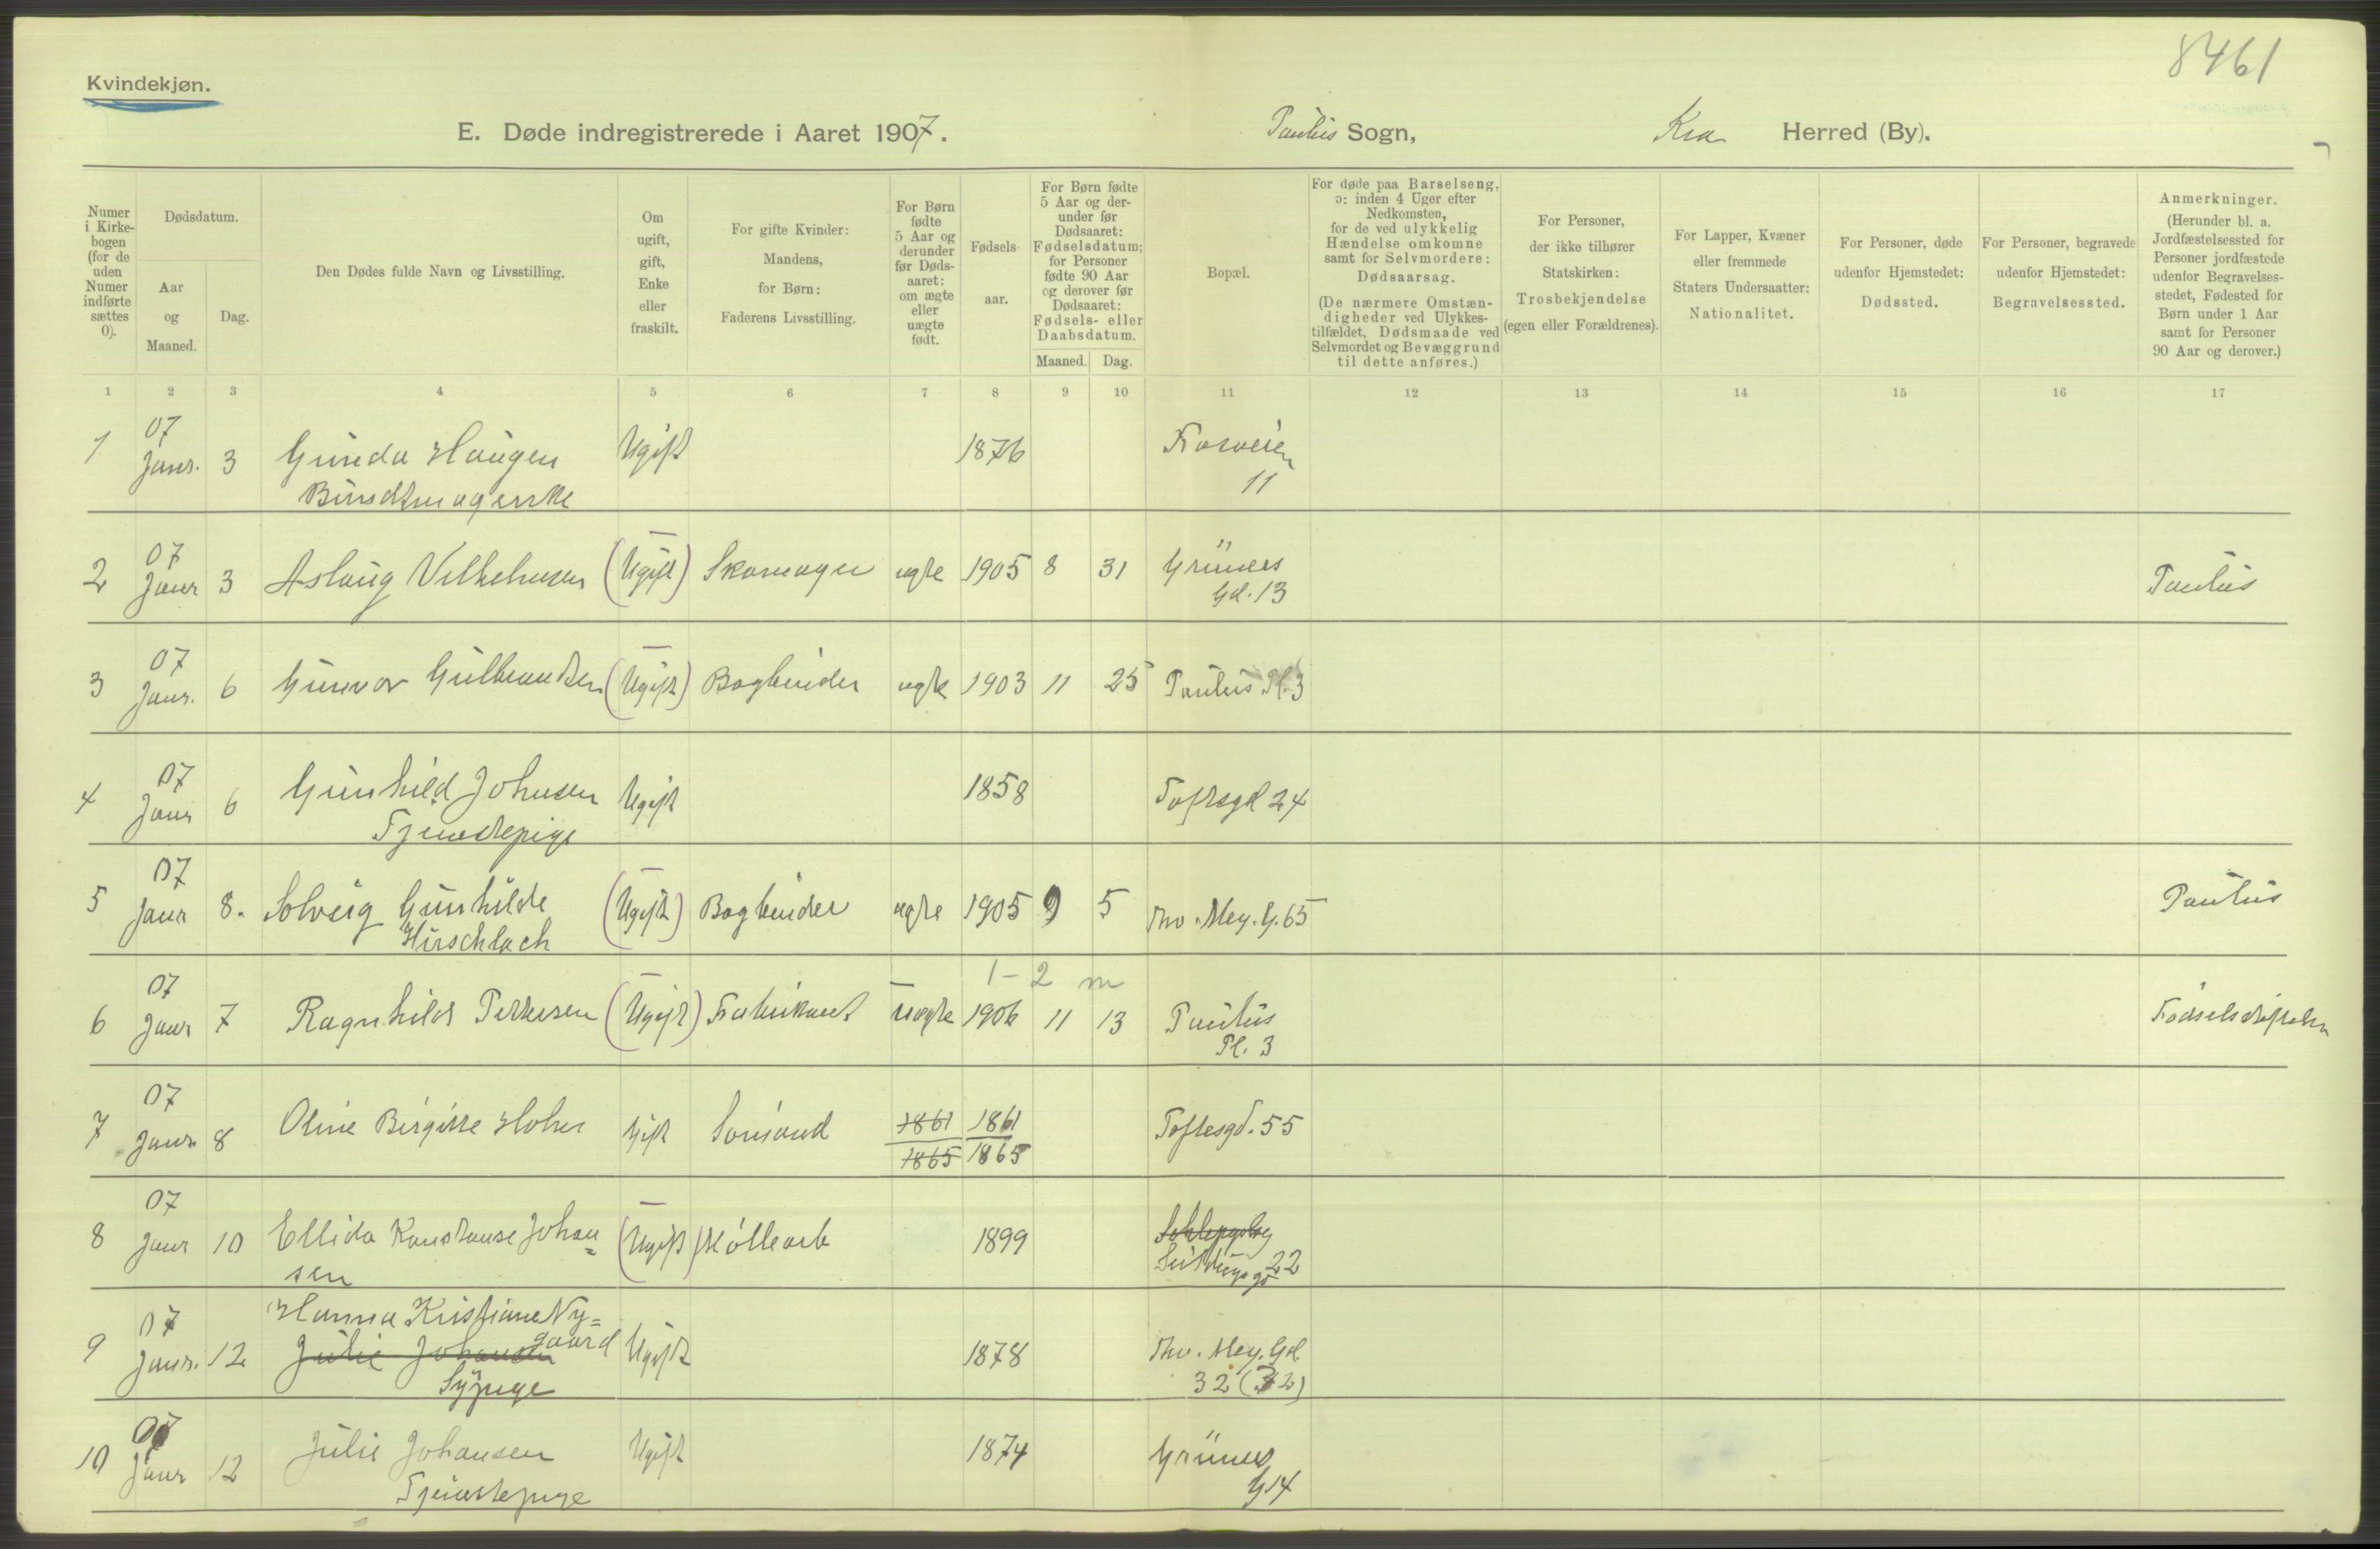 8461
Kvindekjøn.
E. Døde indregistrerede i Aaret 1907. Paulus Sogn, Kra Herred (By).
Numer i Kirkebogen (for de uden Numer indførte sættes 0).
Dødsdatum.
Aar og Maaned.
Dag.
Den Dødes fulde Navn og Livsstilling.
Om ugift, gift, Enke eller fraskilt.
For gifte Kvinder: Mandens, for Børn: Faderens Livsstilling.
For Børn fødte 5 Aar og derunder før Dødsaaret: om ægte eller uægte født.
Fødselsaar.
For Børn fødte 5 Aar og derunder før Dødsaaret: Fødselsdatum; for Personer fødte 90 Aar og derover før Dødsaaret: Fødsels- eller Daabsdatum.
Maaned. Dag.
Bopæl.
For døde paa Barselseng, ɔ: inden 4 Uger efter Nedkomsten, for de ved ulykkelig Hændelse omkomne samt for Selvmordere: Dødsaarsag.
(De nærmere Omstændigheder ved Ulykkestilfældet, Dødsmaade ved Selvmordet og Bevæggrund til dette anføres.)
For Personer, der ikke tilhører Statskirken: Trosbekjendelse (egen eller Forældrenes).
For Lapper, Kvæner eller fremmede Staters Undersaatter: Nationalitet.
For Personer, døde udenfor Hjemstedet: Dødssted.
For Personer, begravede udenfor Hjemstedet: Begravelsessted.
Anmerkninger. (Herunder bl. a. Jordfæstelsessted for Personer jordfæstede udenfor Begravelsesstedet, Fødested for Børn under 1 Aar samt for Personer 90 Aar og derover.)
1 2 3 4 5 6 7 8 9 10 11 12 13 14 15 16 17
07
1 Janr. 3 Gunda Haugen Ugift 1876
Bundtmagerske 11
07
2 Janr 3 Aslaug Vilhelmsen (Ugift) Skomager ægte 1905 8 31 Grüners
Gd. 13 Paulus
07
3 Janr. 6 Gunvor Gulbrandsen (Ugift) Bogbinder ægte 1903 11 25 Paulus Pl. 3
07
4 Janr 6 Gunhild Johnsen Ugift 1858 Toftesgd 24
Tjenestepige
07
5 Janr 8. Solveig Gunhilde (Ugift) Bogbinder ægte 1905 9 5 Thv. Mey. G. 65 Paulus
Hirschlach
1 - 2 m
07
6 Janr 7 Ragnhild Pettersen (Ugift) Fabrikant uægte 1906 11 13 Paulus Fødselsstiftelsen
Pl. 3
07
7 Janr. 8 Oline Birgitte Holm Gift 1861 1861 Toftesgd. 55
1865 1865
07
8 Janr 10 Ellida Konstanse Johan= (Ugift) Møllearb 1899
sen 22
Hanna Kristiane Ny=
07 gaard
9 Janr. 12 Julie Johansen Ugift 1878 Thv. Mey. Gd.
Sypige 32 (32)
07
10 Janr 12 Julie Johansen Ugift 1874 Grüners
Tjenestepige G 14